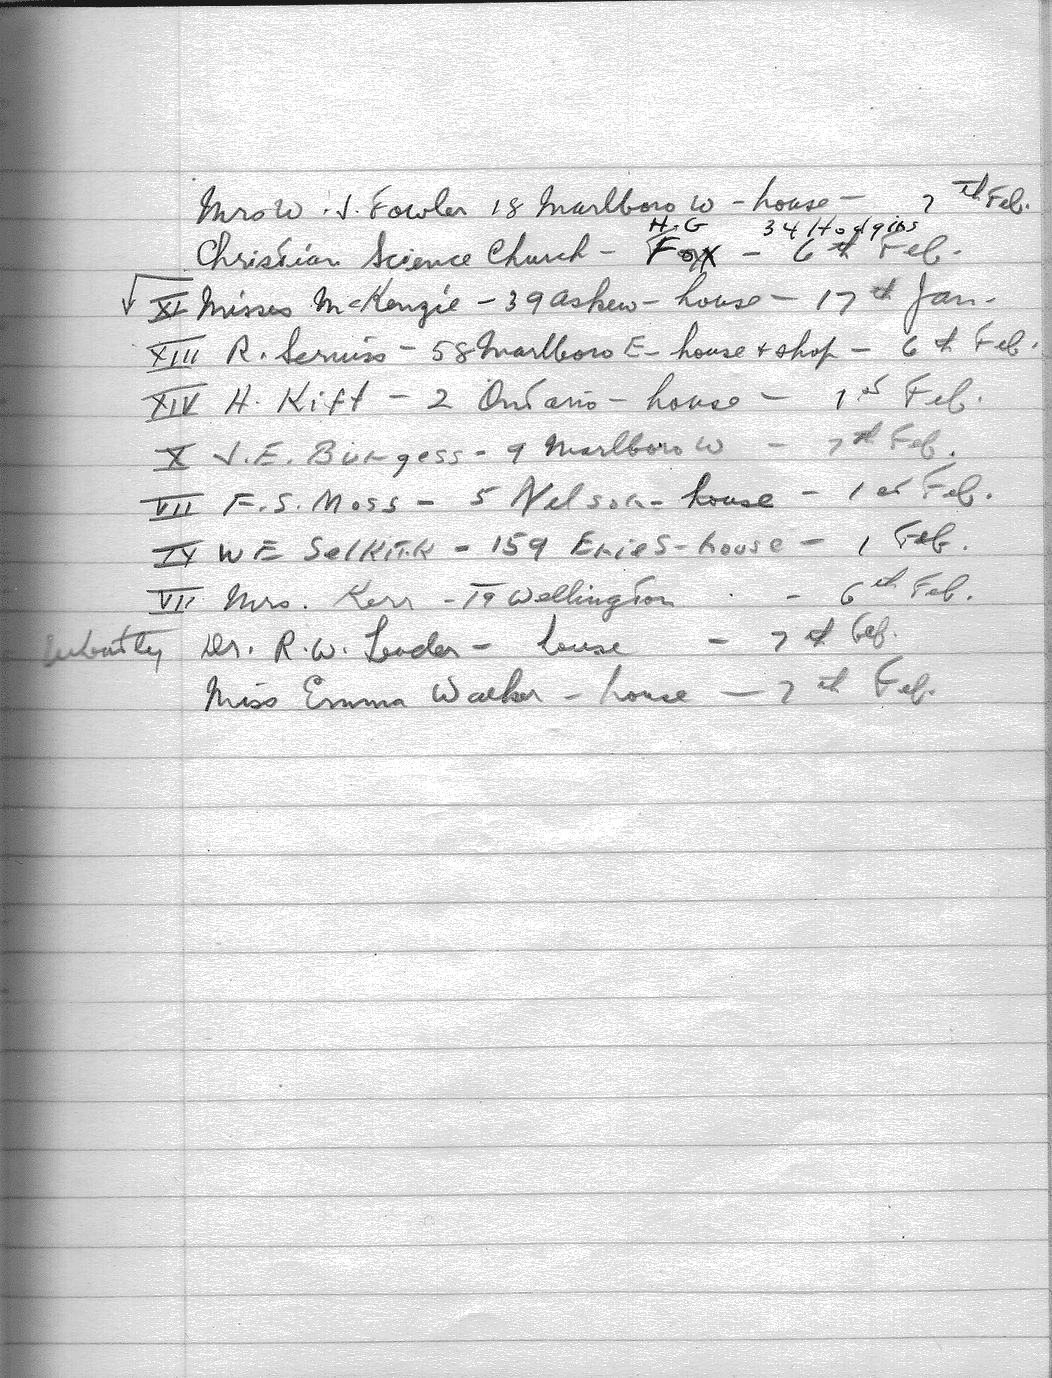 Mrs W. J. Fowler 18 Marlboro W - house - 7 th Feb.
H. G 34 Hodgins
Christian Science Church - Fox - 6 th Feb.
XI Misses McKenzie - 39 Askew - house - 17 th Jan.
XIII R. Serviss - 58 Marlboro E - house + shop - 6 th Feb.
XIV H. Kift - 2 Ontario - house - 1 st Feb.
X J. E. Burgess - 9 Marlboro W - 7 th Feb.
VII F. S. Moss - 5 Nelson - house - 1 st Feb.
IX W E Selkirk - 159 Erie S - house - 1 Feb.
VII Mrs. Kerr - 19 Wellington - 6 th Feb.
Dr. R. W. - house - 7 th Feb.
Miss Emma Walker - house - 7 th Feb.